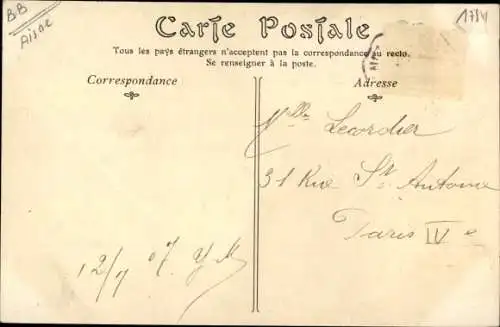 BB
Aisne
1714
Carte Postale
Tous les pays étrangers n'acceptent pas la correspondance au recto.
Se renseigner à la poste.
Correspondance
Adresse
Mlle Lecordier
31 Rue St Antoine
Paris IVe
12/7 07. YM